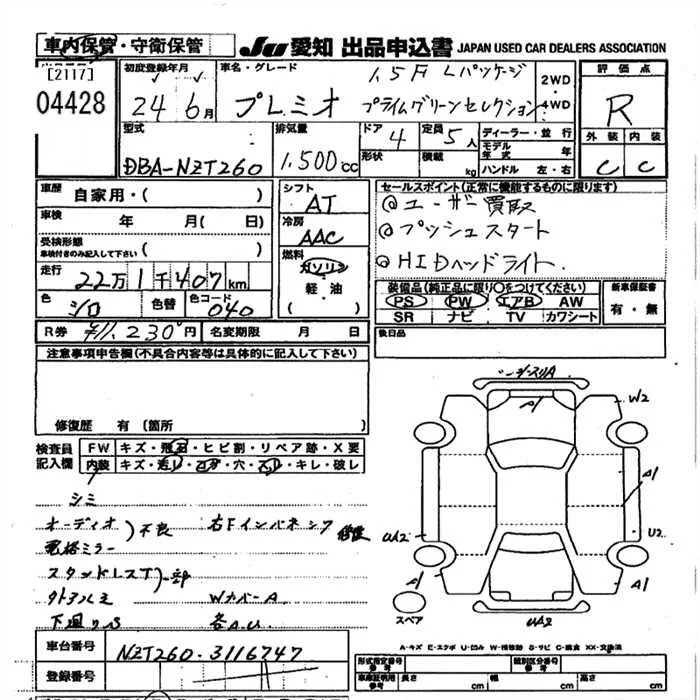 車内保管・守衛保管 JU 愛知 出品申込書 JAPAN USED CAR DEALERS ASSOCIATION
[2117]
04428
初度登録年月
24年6月
車名・グレード
プレミオ
1.5F Lパッケージ
プライムグリーンセレクション
2WD
・
4WD
評価点
R
外装 内装
C C
型式
DBA-NZT260
排気量
1.500cc
ドア 4
形状
定員 5人
積載 kg
ディーラー・並行
モデル年式 年
ハンドル 左・右
車歴 自家用・( )
車検 年 月( 日)
受検形態
車検付きのみ記入して下さい ( )
走行 22万1千407km
色 シロ 色替 色コード 040
R券 ¥11,230円 名変期限 月 日
シフト
AT
冷房
AAC
燃料
ガソリン
軽・油
( )
セールスポイント(正常に機能するものに限ります)
@ユーザー買取
@プッシュスタート
@HIDヘッドライト.
装備品(純正品に限り○をつけてください)
PS PW エアB AW
SR ナビ TV カワシート
新車保証書
有・無
後日品
注意事項申告欄(不具合内容等は具体的に記入して下さい)
修復歴 有(箇所 )
検査員記入欄
FW キズ・飛石・ヒビ割・リペア跡・X要
内装 キズ・汚レ・コゲ・穴・スレ・キレ・破レ
シミ
オーディオ)不良 右Fインパネシワ
電格ミラー
スタッドレスT
WカバーA
下廻りS 各A.U.
A1
W2
A1
UA2
U2
A1
A1
UA2
スペア
A-キズ E-エクボ U-凹み W-補修跡 S-サビ C-腐食 XX-交換済
車台番号 NZT260-3116747
登録番号
形式指定番号 参考
類別区分番号 参考
車庫証明用 参考 長さ cm 幅 cm 高さ cm